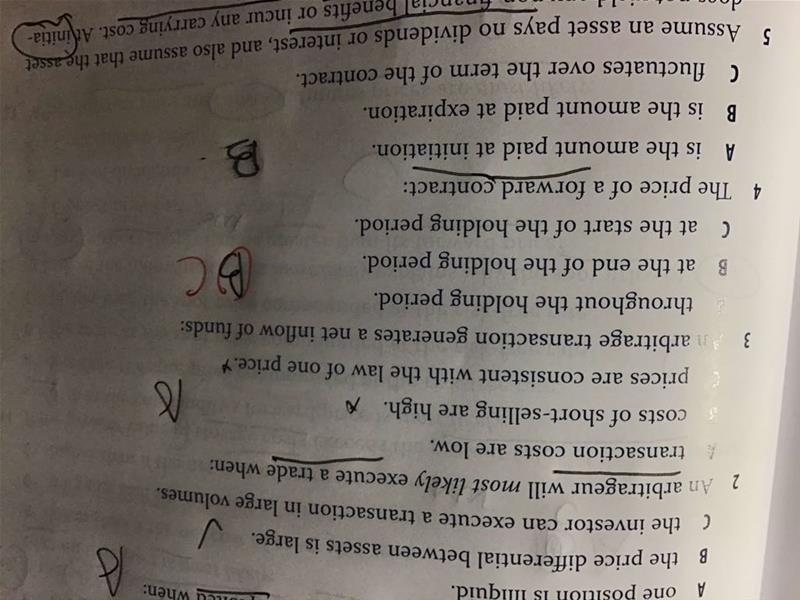 when:
A one position is illiquid. A
B the price differential between assets is large. ✓
C the investor can execute a transaction in large volumes.
2 An arbitrageur will most likely execute a trade when:
A transaction costs are low.
B costs of short-selling are high. x
C prices are consistent with the law of one price. x
A
3 An arbitrage transaction generates a net inflow of funds:
A throughout the holding period.
B at the end of the holding period. B C
C at the start of the holding period.
4 The price of a forward contract:
A is the amount paid at initiation. B
B is the amount paid at expiration.
C fluctuates over the term of the contract.
5 Assume an asset pays no dividends or interest, and also assume that the asset
financial benefits or incur any carrying cost. At initia-